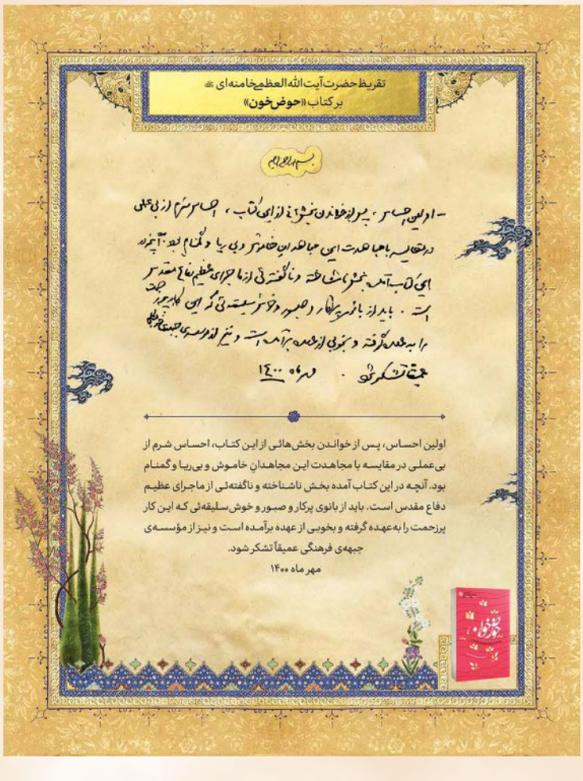 تقریظ حضرت آیت‌الله‌العظمی خامنه‌ای
بر کتاب «حوض‌خون»
- اولین احساس، پس از خواندن بخشهائی از این کتاب، احساس شرم از بی‌عملی
در مقایسه با مجاهدت این مجاهدان خاموش و بی ریا و گمنام بود. آنچه در
این کتاب آمده بخش ناشناخته و ناگفته‌ئی از ماجرای عظیم دفاع مقدس
است. باید از بانوی پرکار و صبور و خوش‌سلیقه‌ئی که این کار پرزحمت
را به عهده گرفته و بخوبی از عهده برآمده است و نیز از مؤسسه‌ی جبهه‌ی فرهنگی
عمیقاً تشکر شود. مهر ماه ۱۴۰۰
اولین احساس، پس از خواندن بخش‌هائی از این کتاب، احساس شرم از
بی‌عملی در مقایسه با مجاهدت این مجاهدانِ خاموش و بی‌ریا و گمنام
بود. آنچه در این کتاب آمده بخش ناشناخته و ناگفته‌ئی از ماجرای عظیم
دفاع مقدس است. باید از بانوی پرکار و صبور و خوش‌سلیقه‌ئی که این کار
پرزحمت را به‌عهده گرفته و بخوبی از عهده برآمده است و نیز از مؤسسه‌ی
جبهه‌ی فرهنگی عمیقاً تشکر شود.
مهر ماه ۱۴۰۰
حوض خون